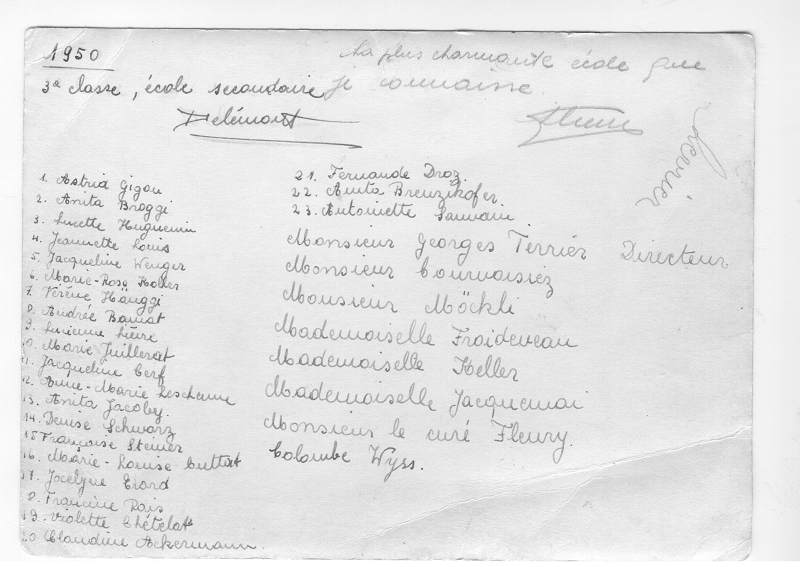 1950
La plus charmante école que
je connaisse.
3e classe, école secondaire
Delémont
1. Astrid Gigon
2. Anita Broggi
3. Lucette Huguenin
4. Jeannette Louis
5. Jacqueline Wenger
6. Marie-Rose Koller
7. Vérène Hänggi
8. Andrée Bamat
9. Lucienne Lièvre
10. Marie Juillerat
11. Jacqueline Cerf
12. Anne-Marie Leschenne
13. Anita Jacobey.
14. Denise Schwarz
15 Françoise Steiner
16. Marie-Louise Cuttat
17. Jocelyne Erard
18. Francine Rais
19. Violette Chételat
20 Claudine Ackermann.
21. Fernande Droz
22. Anita Breuzikofer
23. Antoinette Sauvain
Monsieur Georges Terrier Directeur
Monsieur Courvoisiez
Monsieur Möckli
Mademoiselle Froideveau
Mademoiselle Keller
Mademoiselle Jacquemai
Monsieur le curé Fleury.
Colombe Wyss.